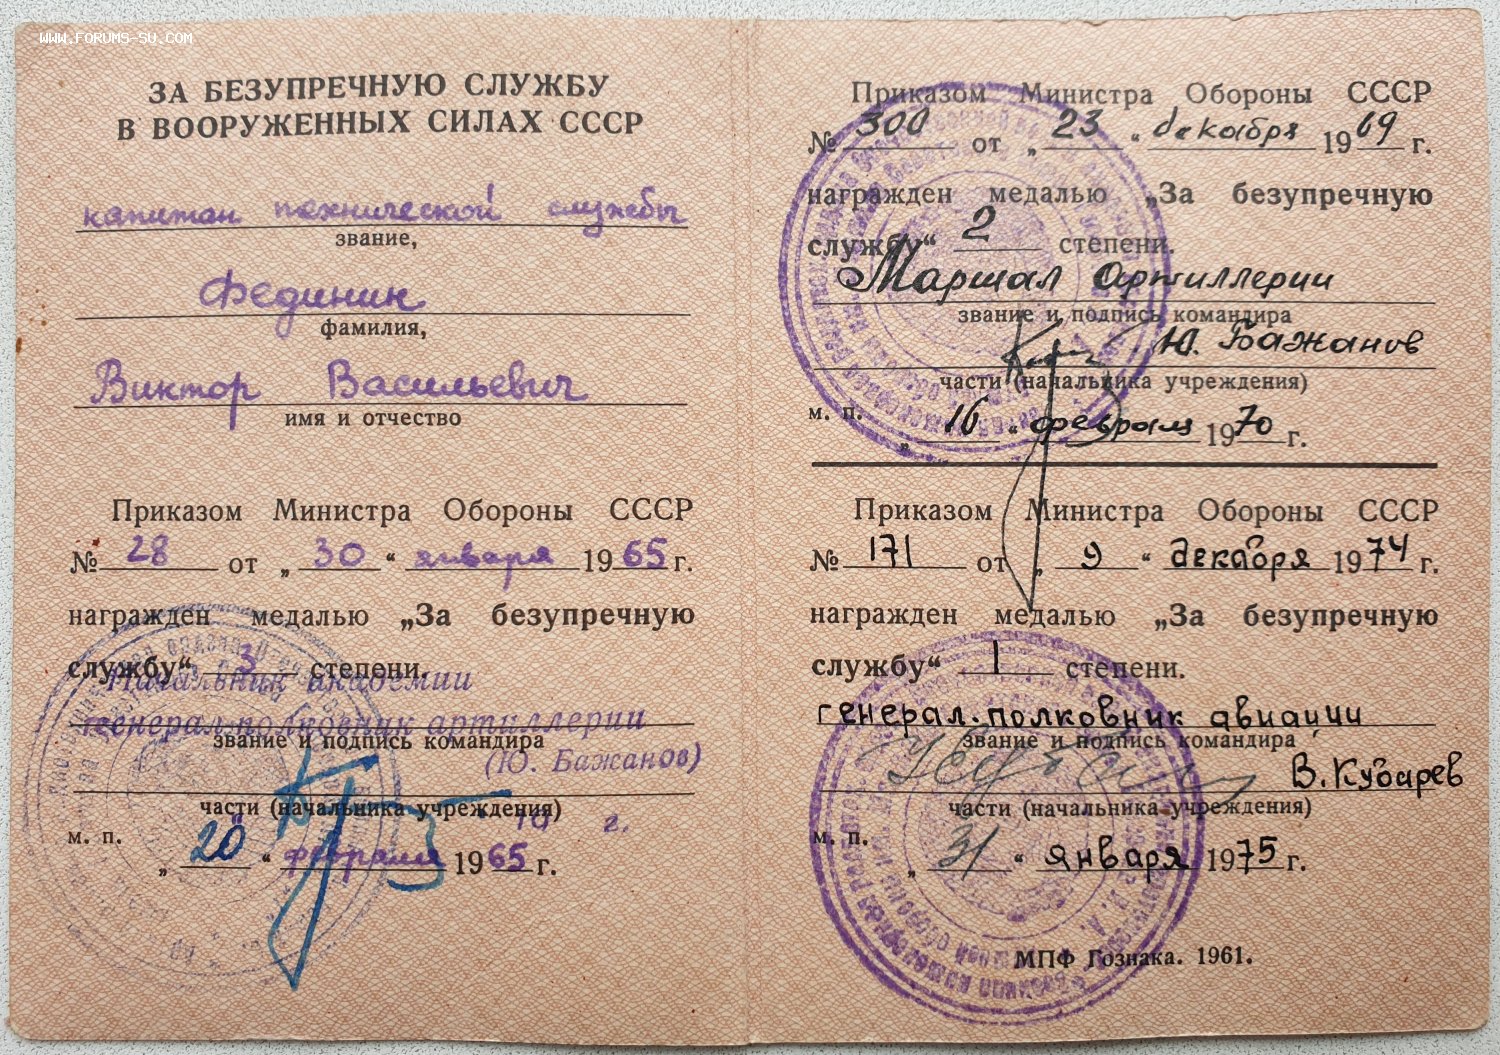 WWW.FORUMS-SU.COM
ЗА БЕЗУПРЕЧНУЮ СЛУЖБУ
В ВООРУЖЕННЫХ СИЛАХ СССР
капитан технической службы
звание,
Фединин
фамилия,
Виктор Васильевич
имя и отчество
Приказом Министра Обороны СССР
№ 28 от „ 30 “ января 1965 г.
награжден медалью „За безупречную
службу“ 3 степени.
Начальник академии
генерал-полковник артиллерии
звание и подпись командира
(Ю. Бажанов)
части (начальника учреждения)
м. п.
„ 20 “ февраля 1965 г.
Приказом Министра Обороны СССР
№ 300 от „ 23 “ декабря 1969 г.
награжден медалью „За безупречную
службу“ 2 степени.
Маршал артиллерии
звание и подпись командира
Ю. Бажанов
части (начальника учреждения)
м. п.
„ 16 “ февраля 1970 г.
Приказом Министра Обороны СССР
№ 171 от „ 9 “ декабря 1974 г.
награжден медалью „За безупречную
службу“ 1 степени.
генерал-полковник авиации
звание и подпись командира
В. Кубарев
части (начальника учреждения)
м. п.
„ 31 “ января 1975 г.
МПФ Гознака. 1961.